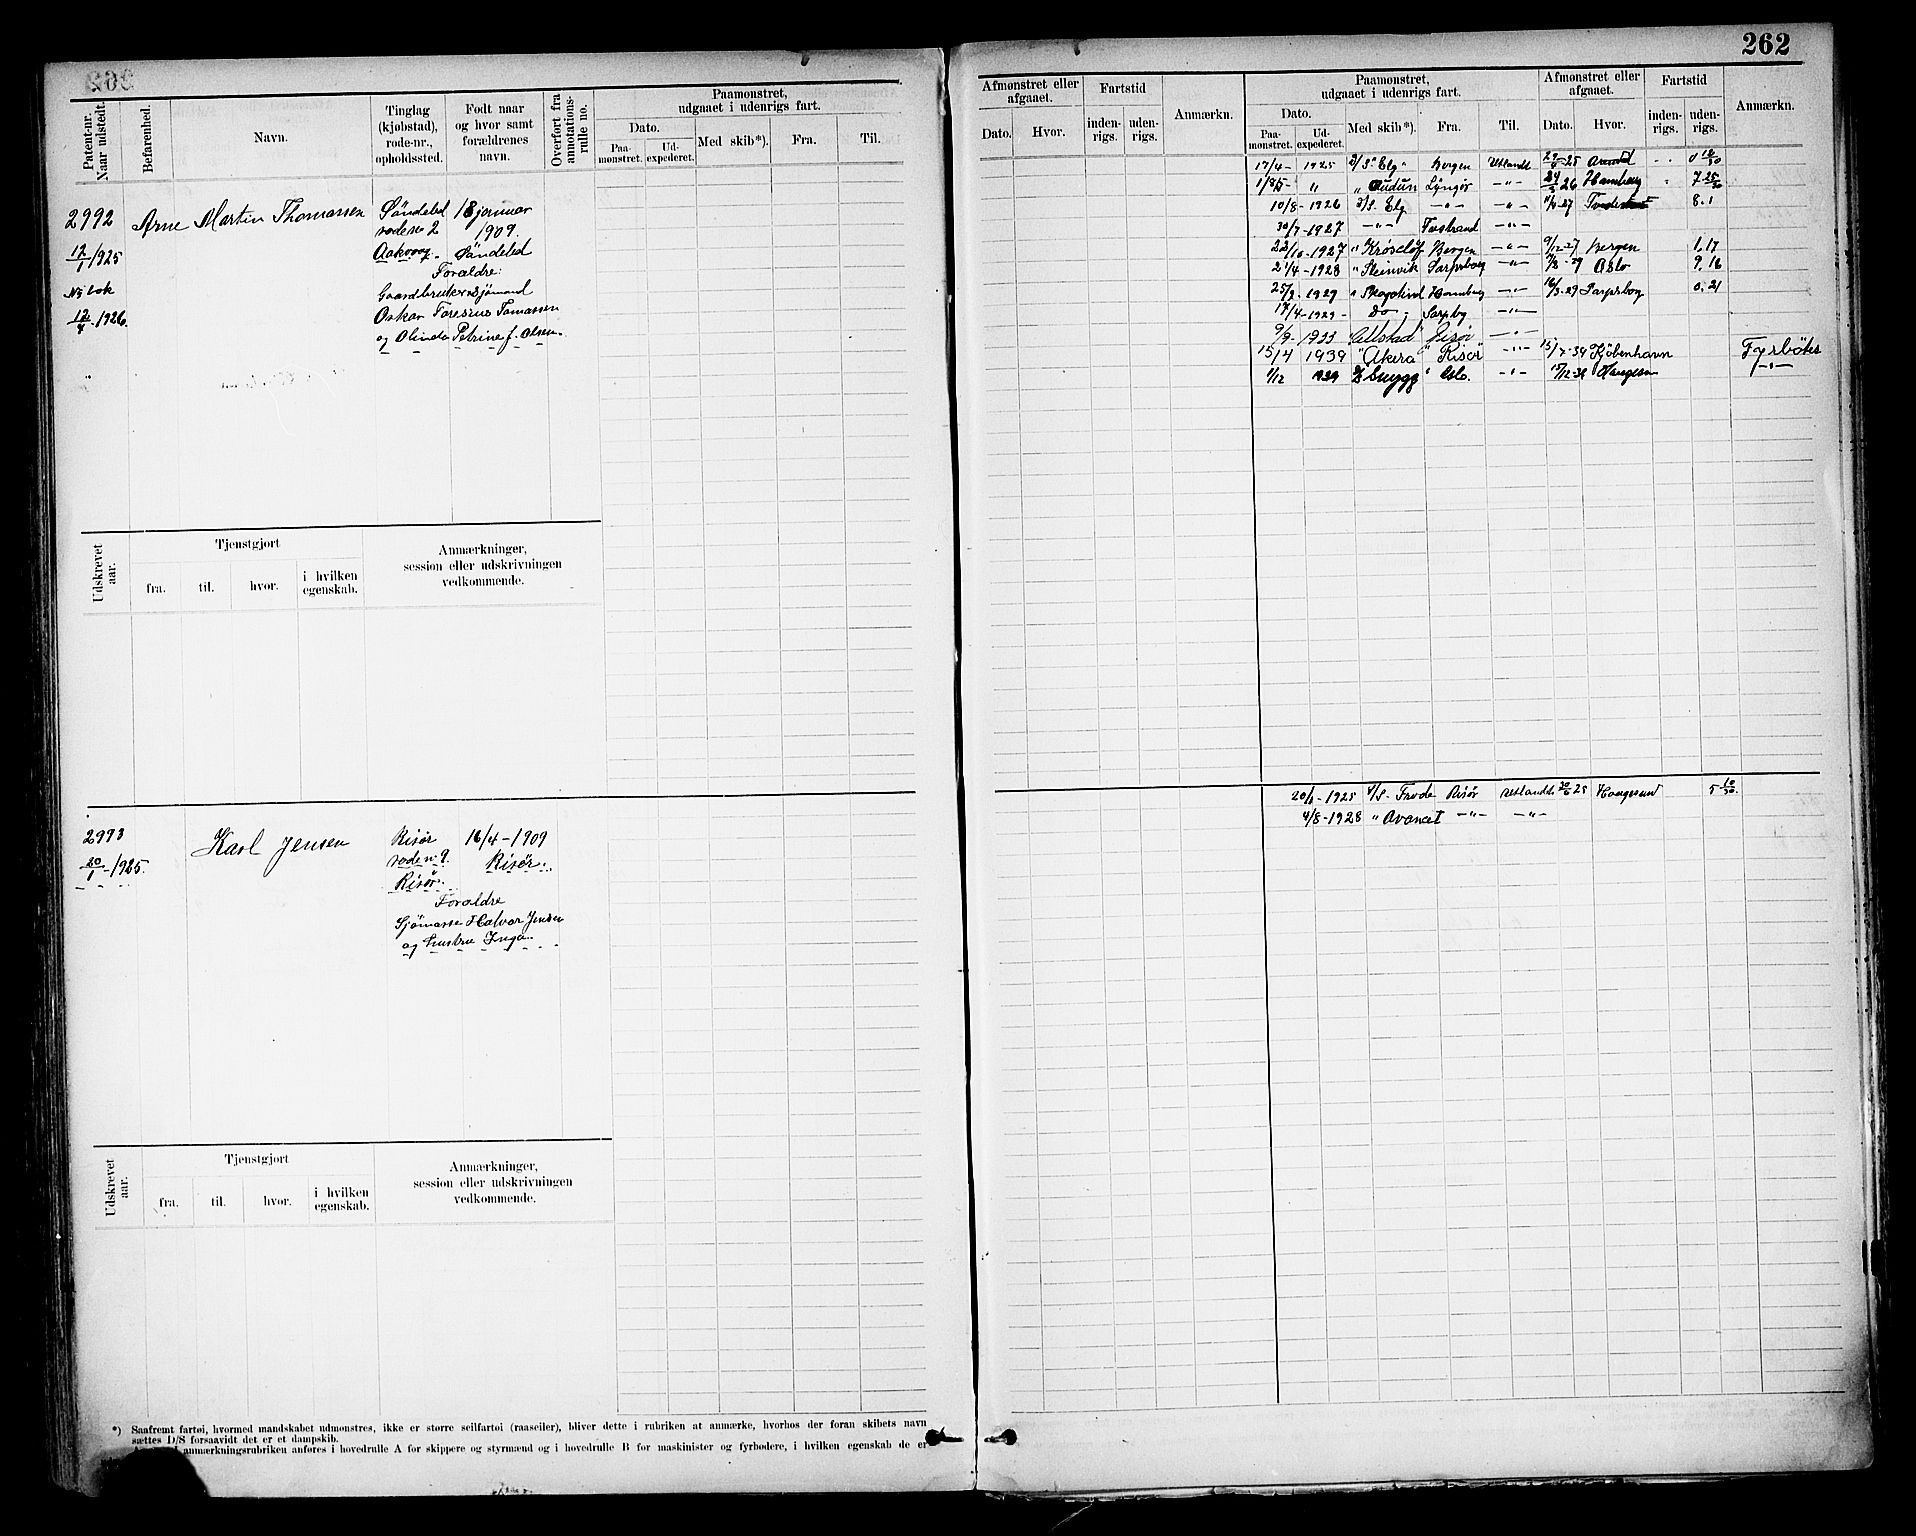 262
Patent-nr. Naar udstedt.
Befarenhed.
Navn.
Tinglag (kjøbstad), rode-nr., opholdssted.
Født naar og hvor samt forældrenes navn.
Overført fra annotationsrulle no.
Paamønstret, udgaaet i udenrigs fart.
Dato.
Paamønstret.
Udexpederet.
Med skib*).
Fra.
Til.
Afmønstret eller afgaaet.
Dato.
Hvor.
Fartstid
indenrigs.
udenrigs.
Anmærkn.
Paamønstret, udgaaet i udenrigs fart.
Dato.
Paamønstret.
Udexpederet.
Med skib*).
Fra.
Til.
Afmønstret eller afgaaet.
Dato.
Hvor.
Fartstid
indenrigs.
udenrigs.
Anmærkn.
2992 Arne Martin Thomassen Søndeled 18 januar
rode no 2 1909.
12/1 1925 Søndeled
Forældre:
Ny bok Gaardbruker Sjømand
12/4 1926 Oskar Tomassen
og Olinda Petrine f. Olsen.
17/4 - 1925 D/S "Elg" Bergen Utlandt 25 0 10/30
" " Audun Lyngør -"- 24/3 26 Hamborg " 7 25/30
10/8 - 1926 D/S. Elg -"- -"- 27 8.1
30/7 - 1927 -"- -"-
22/10 - 1927 " Bergen -"- 9/12 27 Bergen 1.17
21/4 - 1928 " Steinvik Sarpsborg -"- 7/8 29 Oslo 9.16
25/2 - 1929 " Hamburg -"- 16/3 29 Sarpsborg 0.21
17/4 - 1929 - do - Sarpbg -"-
9/9 - 1933 Risør -"-
15/4 1939 "Akera" Risør -"- 15/7-39 Kjøbenhavn Fyrbøter
1/12 1939 Snygg Oslo. -"- 15/12-39 Haugesun -"-
Udskrevet aar.
Tjenstgjort
fra.
til.
hvor.
i hvilken egenskab.
Anmærkninger, session eller udskrivningen vedkommende.
2993 Karl Jensen Risør 16/4 - 1909
20/1 - 1925. rode nr 9. Risør.
Risør.
Forældre
Halvor Jensen
og hustru Inga.
20/1 - 1925 D/S. Frode Risør Utlandt 20/6 25 Haugesund 5 10/30.
4/8 - 1928 " Avance I -"- -"-
Udskrevet aar.
Tjenstgjort
fra.
til.
hvor.
i hvilken egenskab.
Anmærkninger, session eller udskrivningen vedkommende.
*) Saafremt fartøi, hvormed mandskabet udmønstres, ikke er større seilfartøi (raaseiler), bliver dette i rubriken at anmærke, hvorhos der foran skibets navn
sættes D/S forsaavidt det er et dampskib.
anmærkningsrubriken anføres i hovedrulle A for skippere og styrmænd og i hovedrulle B for maskinister og fyrbødere, i hvilken egenskab de er